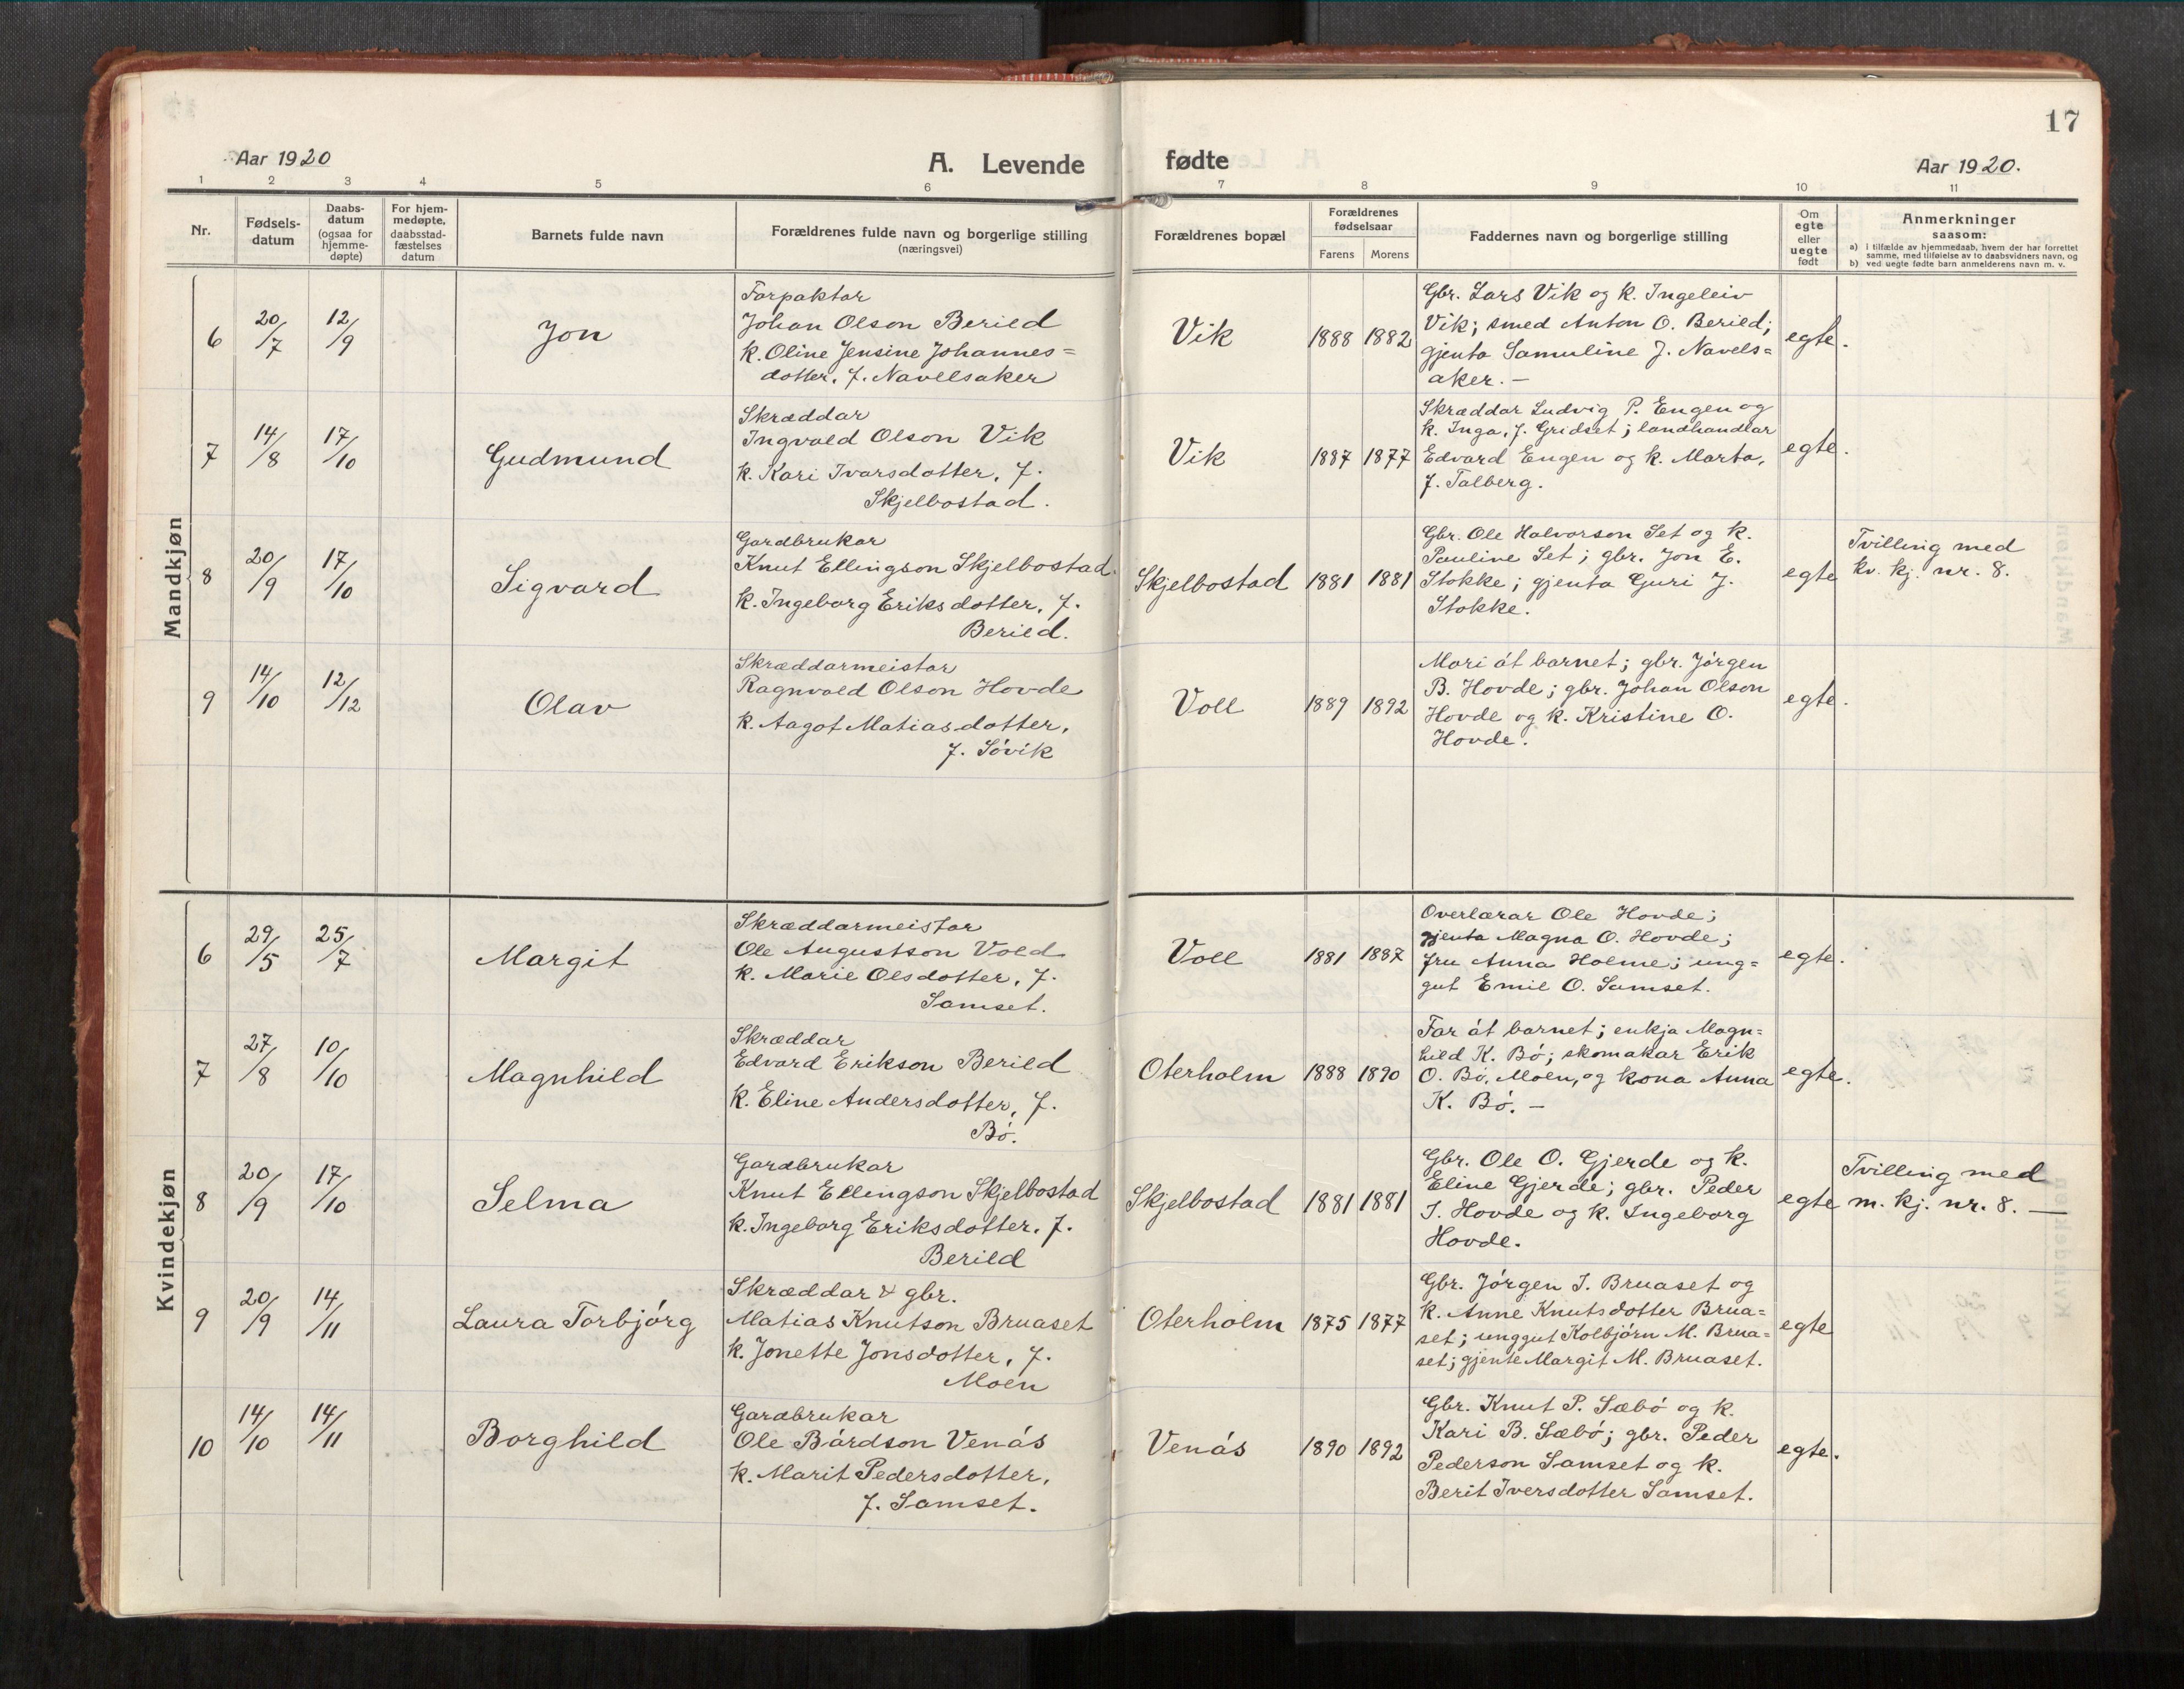 17
Aar 1920
A. Levende fødte
Aar 1920.
1 2 3 4 5 6 7 8 9 10 11
Nr.
Fødsels-
datum
Daabs-
datum
(ogsaa for
hjemme-
døpte)
For hjem-
medøpte,
daabsstad-
fæstelses
datum
Barnets fulde navn
Forældrenes fulde navn og borgerlige stilling
(næringsvei)
Forældrenes bopæl
Forældrenes
fødselsaar
Farens Morens
Faddernes navn og borgerlige stilling
Om
egte
eller
uegte
født
Anmerkninger
saasom:
a) i tilfælde av hjemmedaab, hvem der har forrettet
samme, med tilføielse av to daabsvidners navn, og
b) ved uegte fødte barn anmelderens navn m. v.
Mandkjøn
6
20/7
12/9
Jon
Forpaktar
Johan Olson Berild
k. Oline Jensine Johannes=
dotter, f. Navelsaker
Vik
1888 1882
Gbr. Lars Vik og k. Ingeleiv
Vik; smed Anton O. Berild;
gjenta Samuline J. Navels=
aker. —
egte.
7
14/8
17/10
Gudmund
Skræddar
Ingvald Olson Vik
k. Kari Ivarsdotter, f.
Skjelbostad.
Vik
1887 1877
Skræddar Ludvig P. Engen og
k. Inga, f. Gridset; landhandlar
Edvard Engen og k. Marta,
f. Talberg.
egte.
8
20/9
17/10
Sigvard
Gardbrukar
Knut Ellingson Skjelbostad
k. Ingeborg Eriksdotter, f.
Berild.
Skjelbostad
1881 1881
Gbr. Ole Halvorson Set og k.
Pauline Set; gbr. Jon E.
Stokke; gjenta Guri J.
Stokke.
egte
Tvilling med
kv. kj. nr. 8.
9
14/10
12/12
Olav
Skræddarmeistar
Ragnvald Olson Hovde
k. Aagot Matiasdotter,
f. Sóvik
Voll
1889 1892
Mori át barnet; gbr. Jórgen
B. Hovde; gbr. Johan Olson
Hovde og k. Kristine O.
Hovde.
egte.
Kvindekjøn
6
29/5
25/7
Margit
Skræddarmeistar
Ole Augustson Vold
k. Marie Olsdotter, f.
Samset.
Voll
1881 1887
Overlærar Ole Hovde;
gjenta Magna O. Hovde;
fru Anna Holme; ung=
gut Emil O. Samset.
egte.
7
27/8
10/10
Magnhild
Skræddar
Edvard Erikson Berild
k. Eline Andersdotter, f.
Bó.
Oterholm
1888 1890
Far át barnet; enkja Magn=
hild K. Bó; skomakar Erik
O. Bó, Moen, og kona Anna
K. Bó. —
egte.
8
20/9
17/10
Selma
Gardbrukar
Knut Ellingson Skjelbostad
k. Ingeborg Eriksdotter, f.
Berild
Skjelbostad
1881 1881
Gbr. Ole O. Gjerde og k.
Eline Gjerde; gbr. Peder
J. Hovde og k. Ingeborg
Hovde.
egte
Tvilling med
m. kj. nr. 8. —
9
20/9
14/11
Laura Torbjórg
Skræddar & gbr.
Matias Knutson Bruaset
k. Jonette Jonsdotter, f.
Moen
Oterholm
1875 1877
Gbr. Jórgen I. Bruaset og
k. Anne Knutsdotter Brua=
set; unggut Kolbjórn M. Brua=
set; gjente Margit M. Bruaset.
egte
10
14/10
14/11
Borghild
Gardbrukar
Ole Bárdson Venás
k. Marit Pedersdotter,
f. Samset.
Venás
1890 1892
Gbr. Knut P. Sæbó og k.
Kari B. Sæbó; gbr. Peder
Pederson Samset og k.
Berit Iversdotter Samset.
egte.